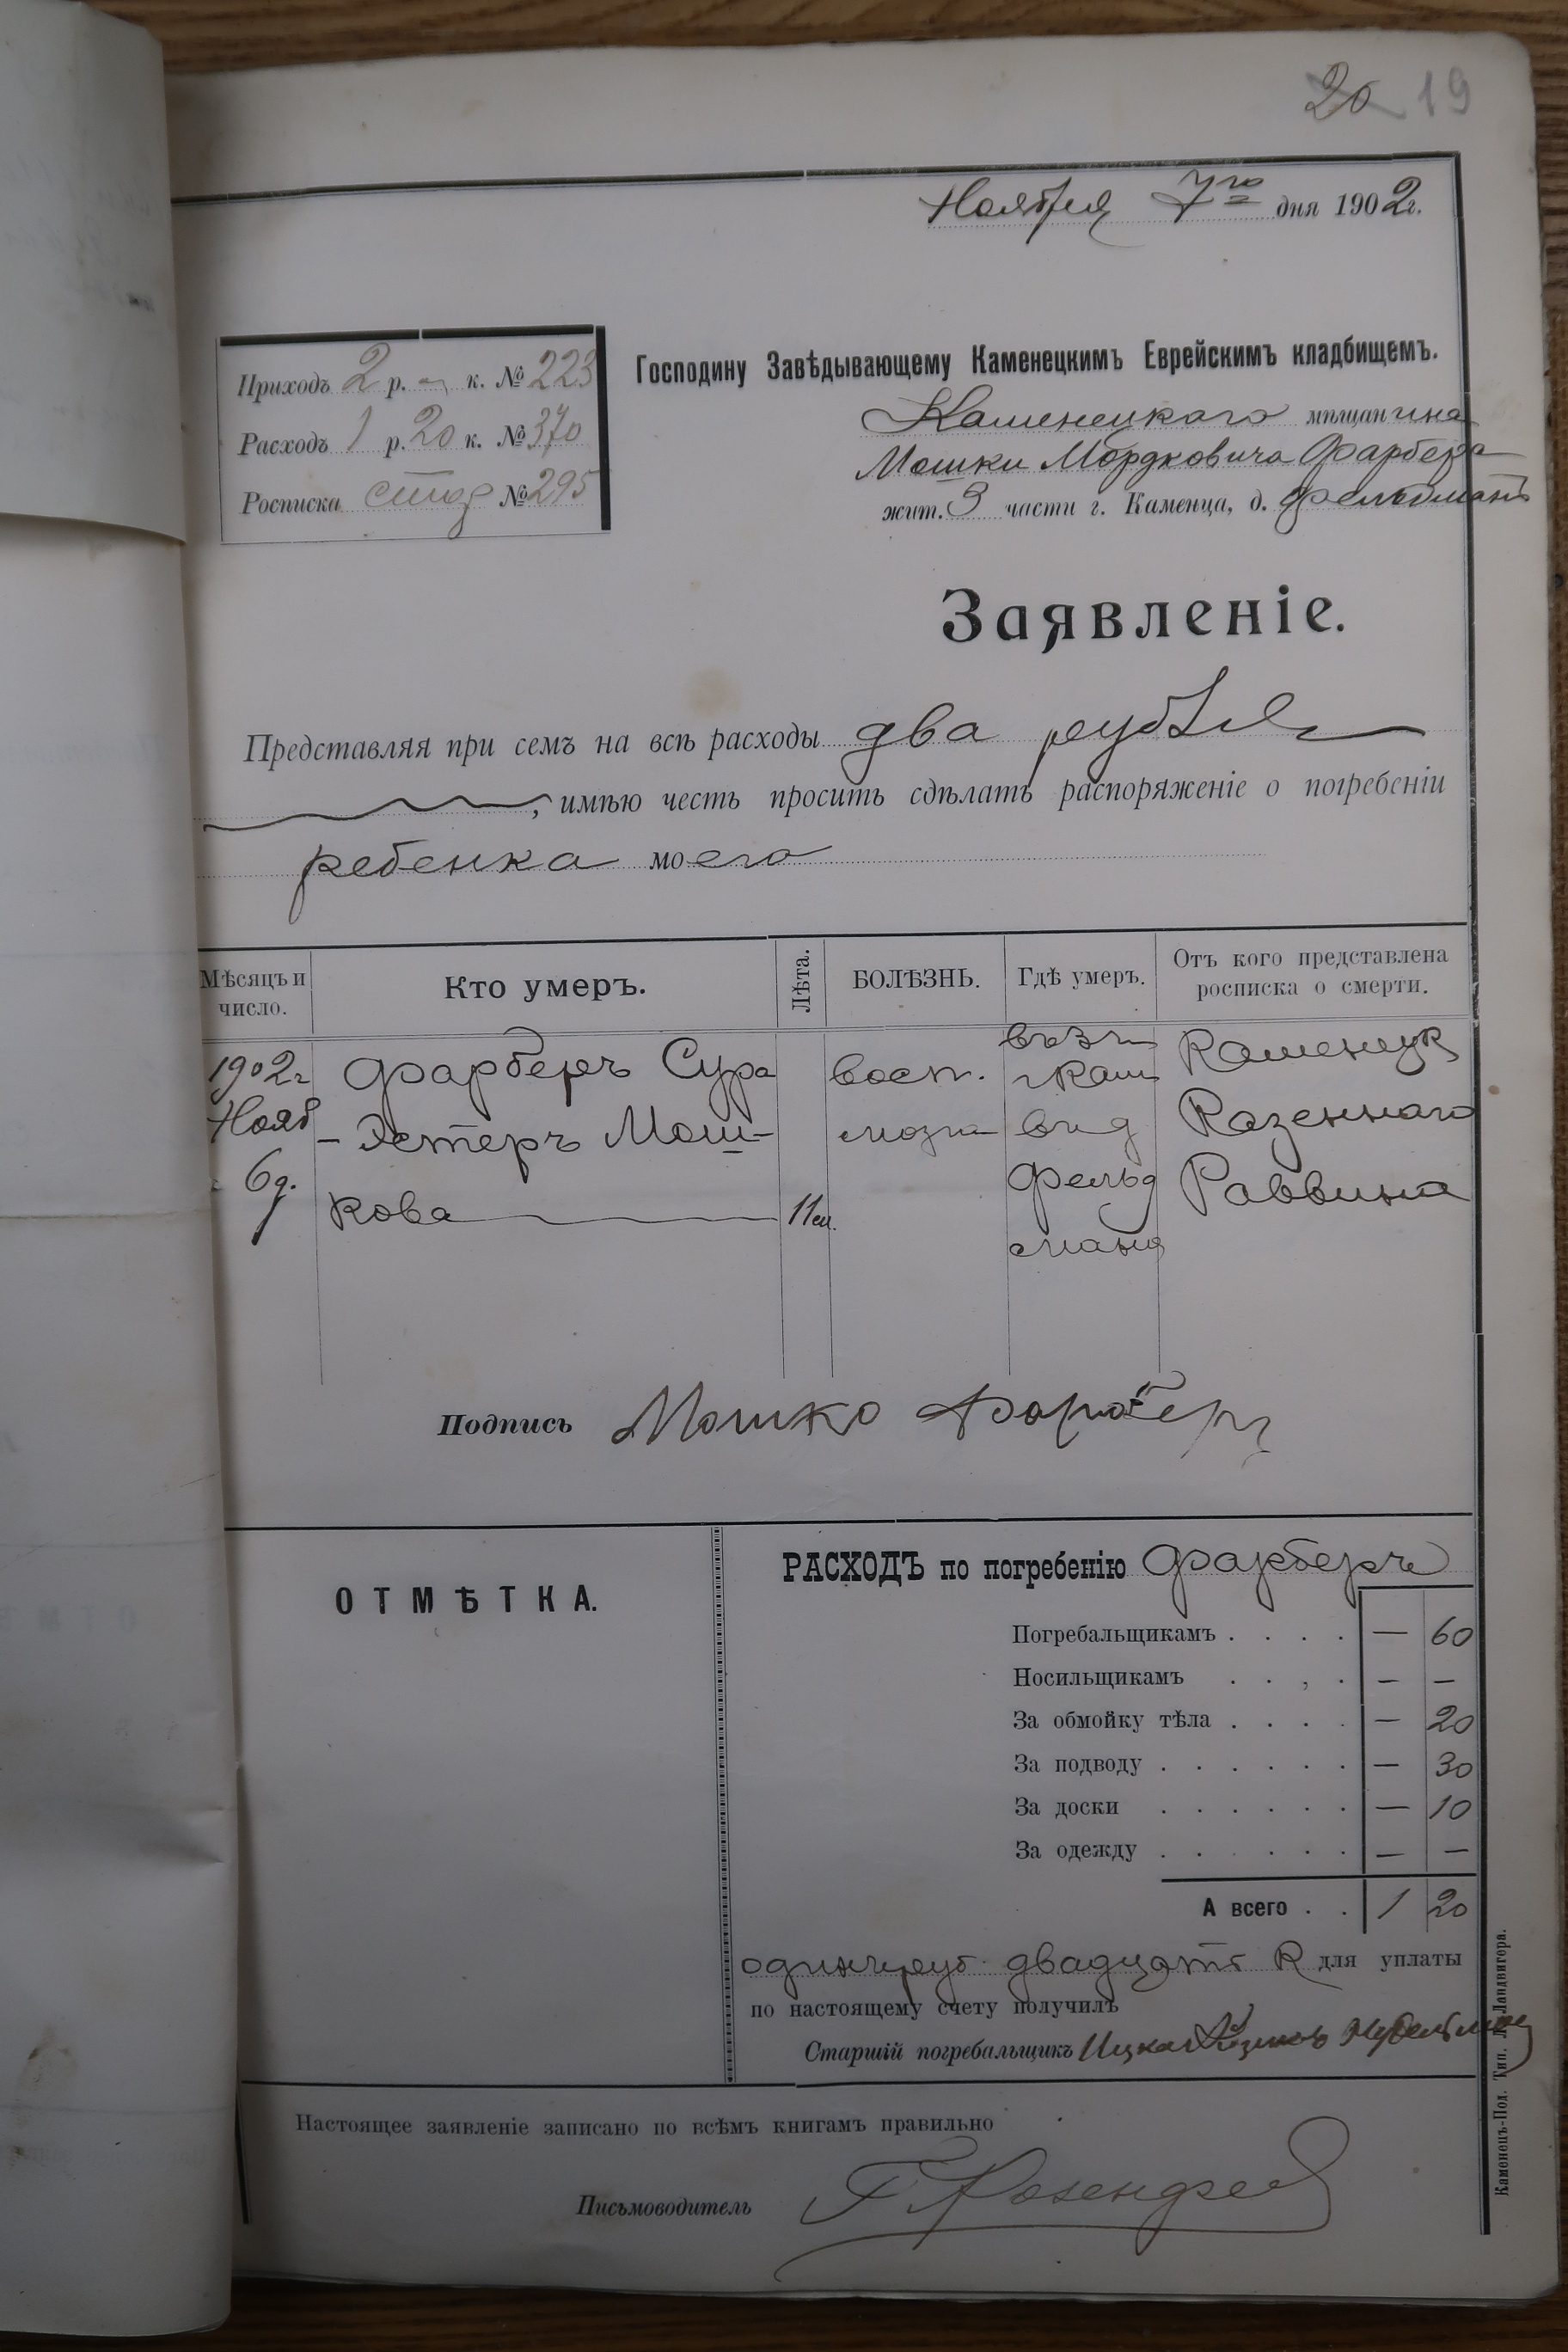 20 19
Ноября 7го дня 1902г.
Приходъ 2 р. – к. № 223
Расходъ 1 р. 20 к. № 370
Росписка № 295
Господину Завѣдывающему Каменецкимъ Еврейскимъ кладбищемъ.
Каменецкаго мѣщанина
Мошки Мордковича Фарбера
жит. 3 части г. Каменца, д. Фельдмана
Заявленіе.
Представляя при семъ на всѣ расходы два рубля
, имѣю честь просить сдѣлать распоряженіе о погребеніи
ребенка моего
Мѣсяцъ и число. Кто умеръ. Лѣта. БОЛѢЗНЬ. Гдѣ умеръ. Отъ кого представлена росписка о смерти.
1902г Фарберъ Сура восп. Каменецк
Нояб – Эстеръ Мош- мозга Казеннаго
6д. кова 11м. Фельд Раввина
мана
Подпись Мошко Фарберъ
ОТМѢТКА.
РАСХОДЪ по погребенію Фарберъ
Погребальщикамъ . . . . — 60
Носильщикамъ . . , . — —
За обмойку тѣла . . . . — 20
За подводу . . . . . . — 30
За доски . . . . . . — 10
За одежду . . . . . . — —
А всего . . 1 20
одинъ руб. двадцать к для уплаты
по настоящему счету получилъ
Старшій погребальщикъ Ицка Нудельман
Настоящее заявленіе записано по всѣмъ книгамъ правильно
Письмоводитель
Каменецъ-Под. Тип. Л. Ландвигера.